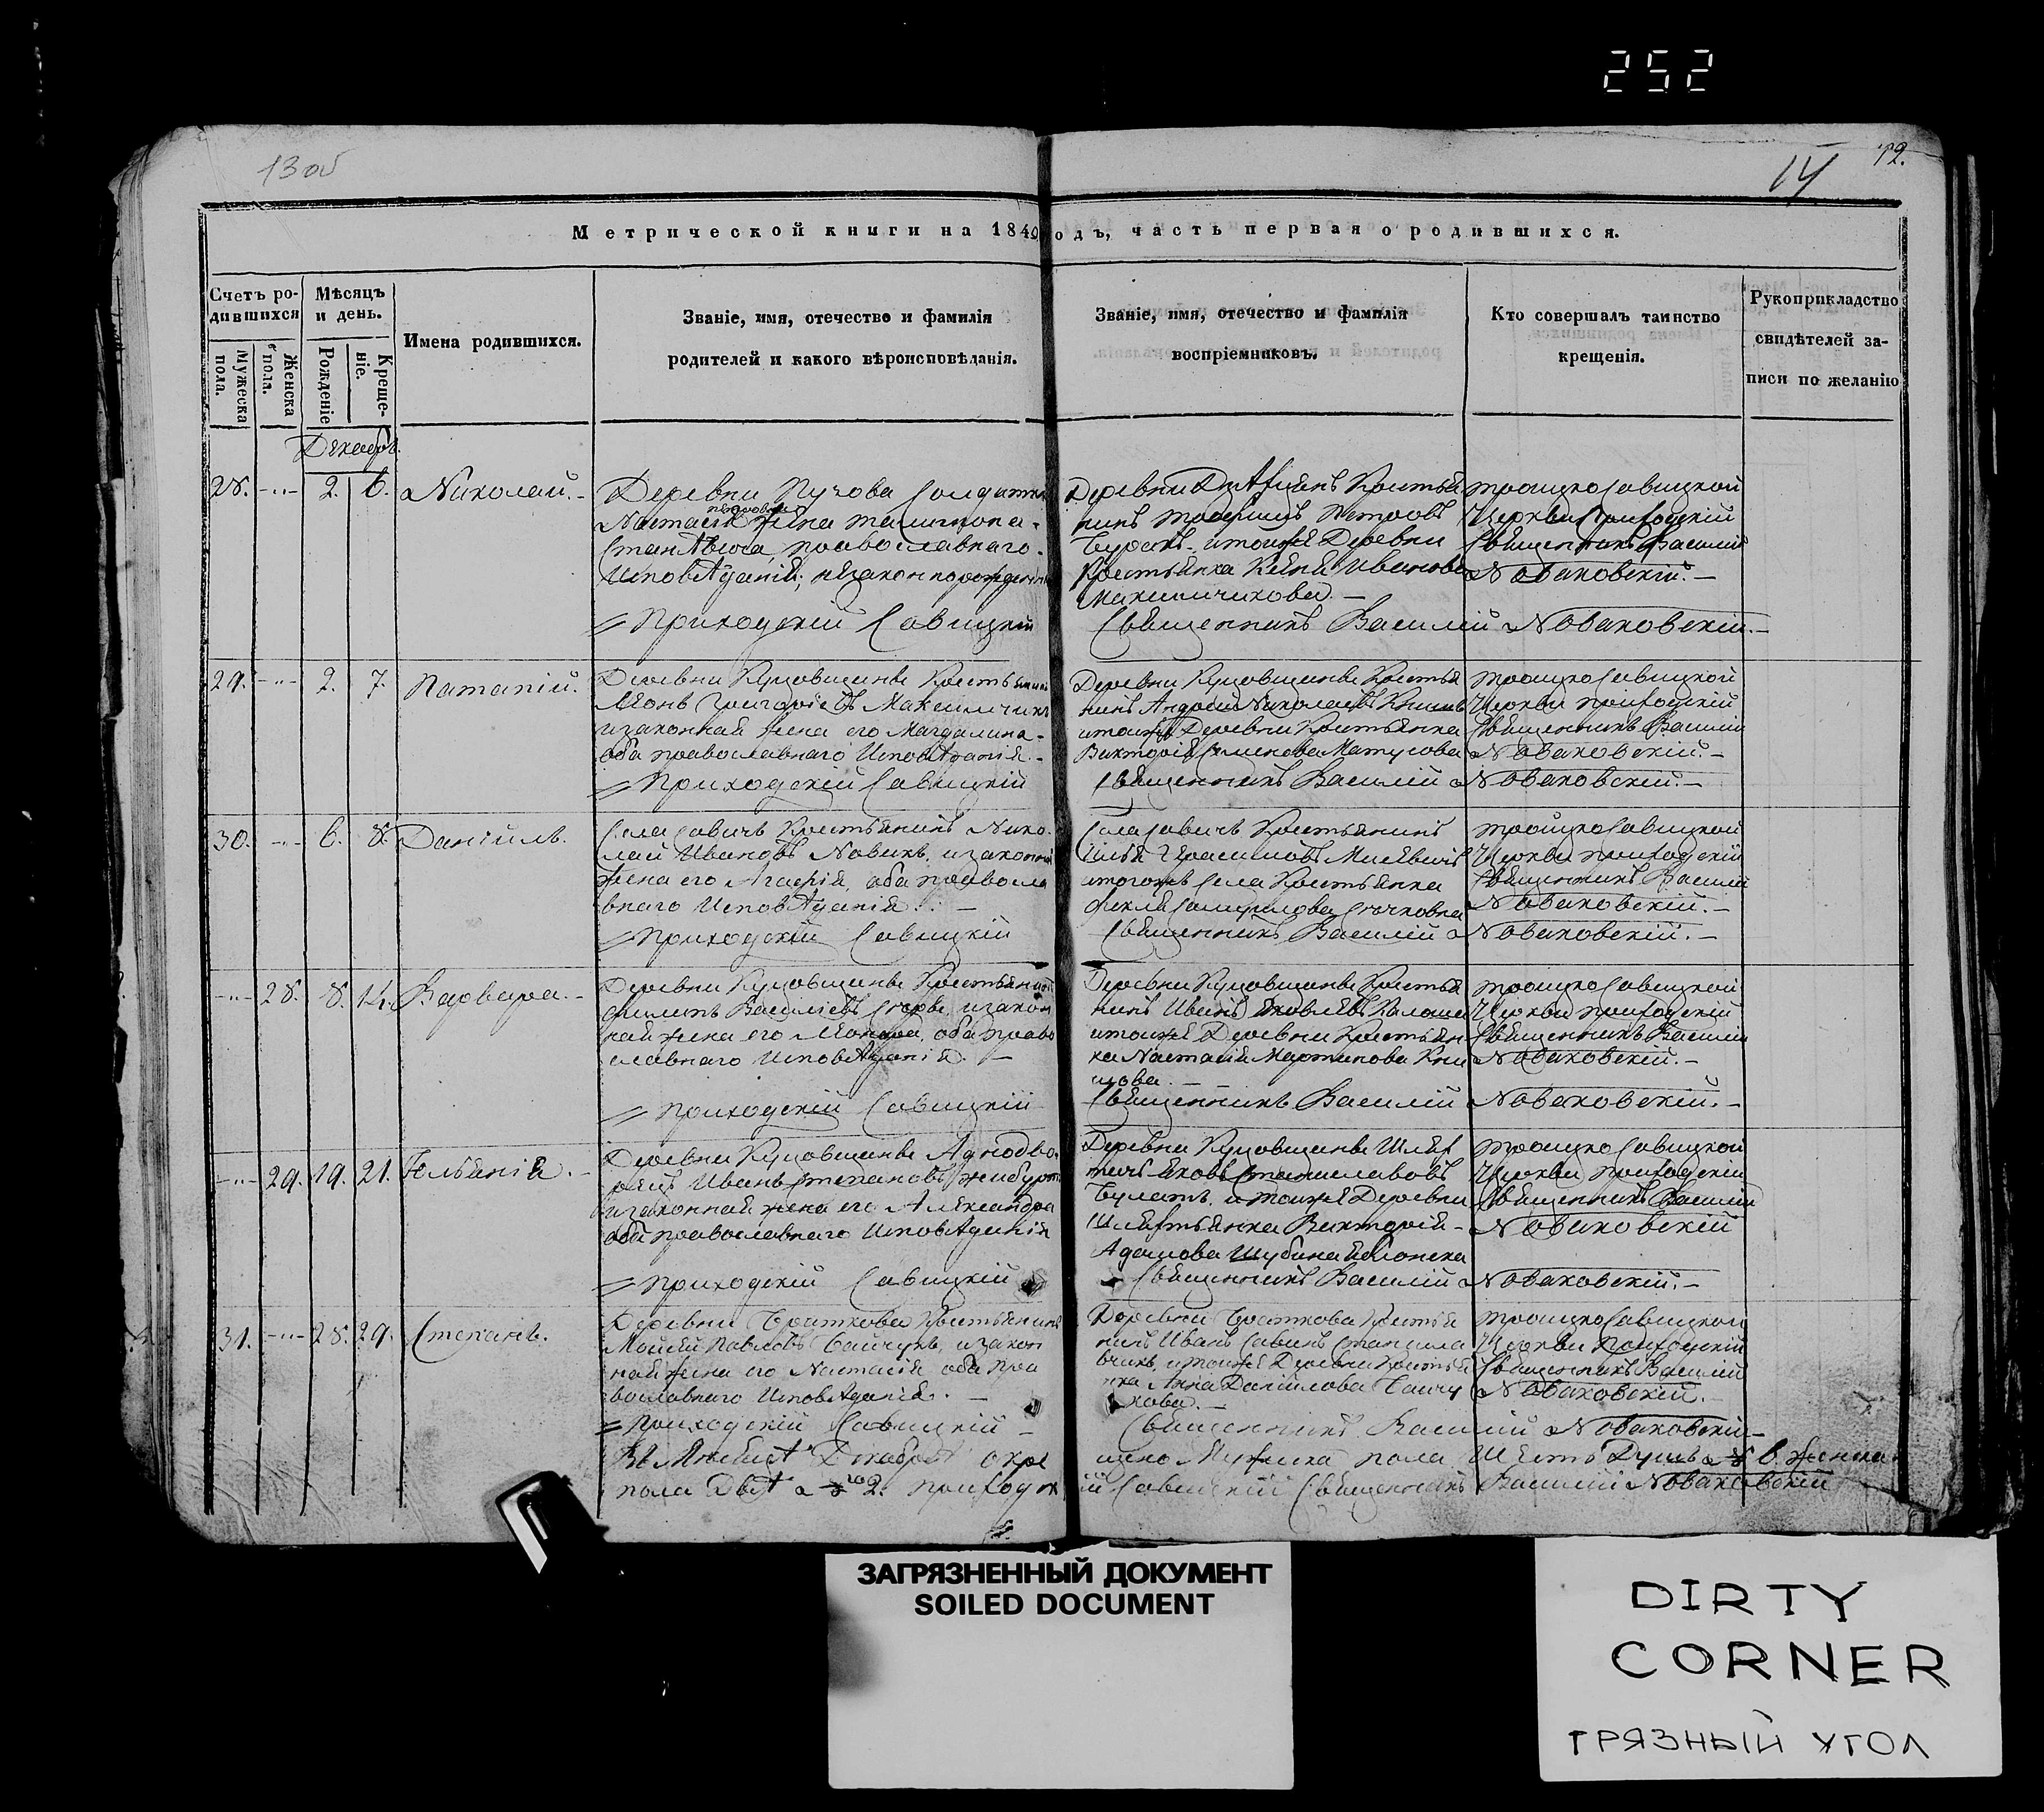 252
13 об
14
12.
Метрической книги на 1849 одъ, часть первая о родившихся.
Счетъ ро-
дившихся
Мужеска пола.
Женска пола.
Мѣсяцъ
и день.
Рожденіе
Креще-
ніе.
Имена родившихся.
Званіе, имя, отечество и фамилія
родителей и какого вѣроисповѣданія.
Званіе, имя, отечество и фамилія
воспріемниковъ.
Кто совершалъ таинство
крещенія.
Рукоприкладство
свидѣтелей за-
писи по желанію
Декабрь.
28. -"- 2. 6. Николай.-
Деревни
православнаго
Приходскій Савицкій
Деревни
итойже Деревни
Крестьянка Иванова
Священникъ Василій Новаковскій.-
Троицко Савицкой
Церкви Приходскій
Священникъ Василій
Новаковскій.-
29. -"- 2. 7. Патапій.
Деревни Куцовщины
изаконная жена его Магдалина-
оба православнаго Исповѣданія.-
Приходскій Савицкій
Деревни Куцовщины Крестья
нинъ Андрей Николаевъ
итойже Деревни Крестьянка
Викторія Семенова
Священникъ Василій Новаковскій.-
Троицко Савицкой
Церкви Приходскій
Священникъ Василій
Новаковскій.-
30. -"- 6. 8. Даніилъ.
Села Савичъ Крестьянинъ Нико
лай Ивановъ Новикъ, изаконная
жена его Агафія, оба правосла
внаго Исповѣданія.-
Приходскій Савицкій
Села Савичъ Крестьянинъ
Илья Герасимовъ
итогожъ Села Крестьянка
Фекла Самуилова
Священникъ Василій Новаковскій.-
Троицко Савицкой
Церкви Приходскій
Священникъ Василій
Новаковскій.-
-"- 28. 8. 14. Варвара.-
Деревни Куцовщины
Филипъ Василіевъ изакон
ная жена его оба право
славнаго Исповѣданія.-
Приходскій Савицкій
Деревни Куцовщины Крестья
нинъ Иванъ Яковлевъ
итойже Деревни Крестьян
ка Настасія Мартинова Кни
шова.-
Священникъ Василій Новаковскій.-
Троицко Савицкой
Церкви Приходскій
Священникъ Василій
Новаковскій.-
-"- 29. 19. 21. Юльянія.-
Деревни Куцовщины Аднодво
рецъ Иванъ Степановъ
изаконная жена его Александра
оба православнаго Исповѣданія
Приходскій Савицкій
Деревни Куцовщины Шлях
тичъ Яковъ Станиславовъ
Булатъ, итойже Деревни
Шляхтянка Викторія-
Адамова
Священникъ Василій Новаковскій.-
Троицко Савицкой
Церкви Приходскій
Священникъ Василій
Новаковскій
31. -"- 28. 29. Степанъ.
Деревни Браткова Крестьянинъ
Моисей Павловъ Байчукъ, изакон
ная жена его Настасія оба пра
вославнаго Исповѣданія.-
Приходскій Савицкій
Деревни Браткова Крестья
нинъ Иванъ Савинъ
итойже Деревни Крестья
нка Анна Даніилова Байчу
кова.-
Священникъ Василій Новаковскій-
Троицко Савицкой
Церкви Приходскій
Священникъ Василій
Новаковскій.
Въ Мѣсяцѣ Декабрѣ окре
щено Мужеска пола Шесть Душъ 6. женска
пола Двѣ 2. Приходск
ій Савицкій Священникъ Василій Новаковскій
ЗАГРЯЗНЕННЫЙ ДОКУМЕНТ
SOILED DOCUMENT
DIRTY
CORNER
ГРЯЗНЫЙ УГОЛ